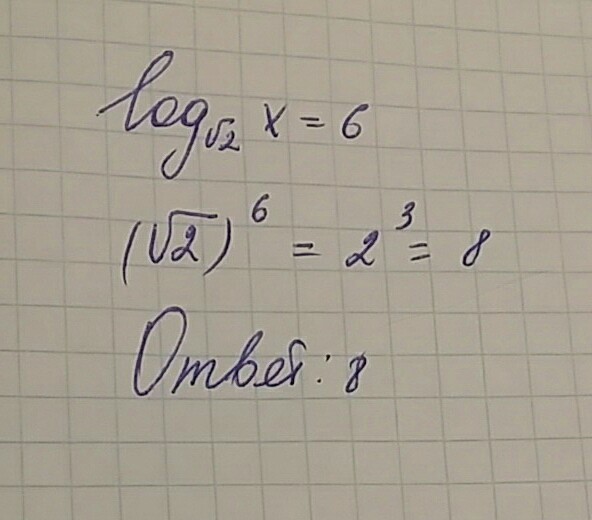 log√2 x = 6
(√2)⁶ = 2³ = 8
Ответ: 8